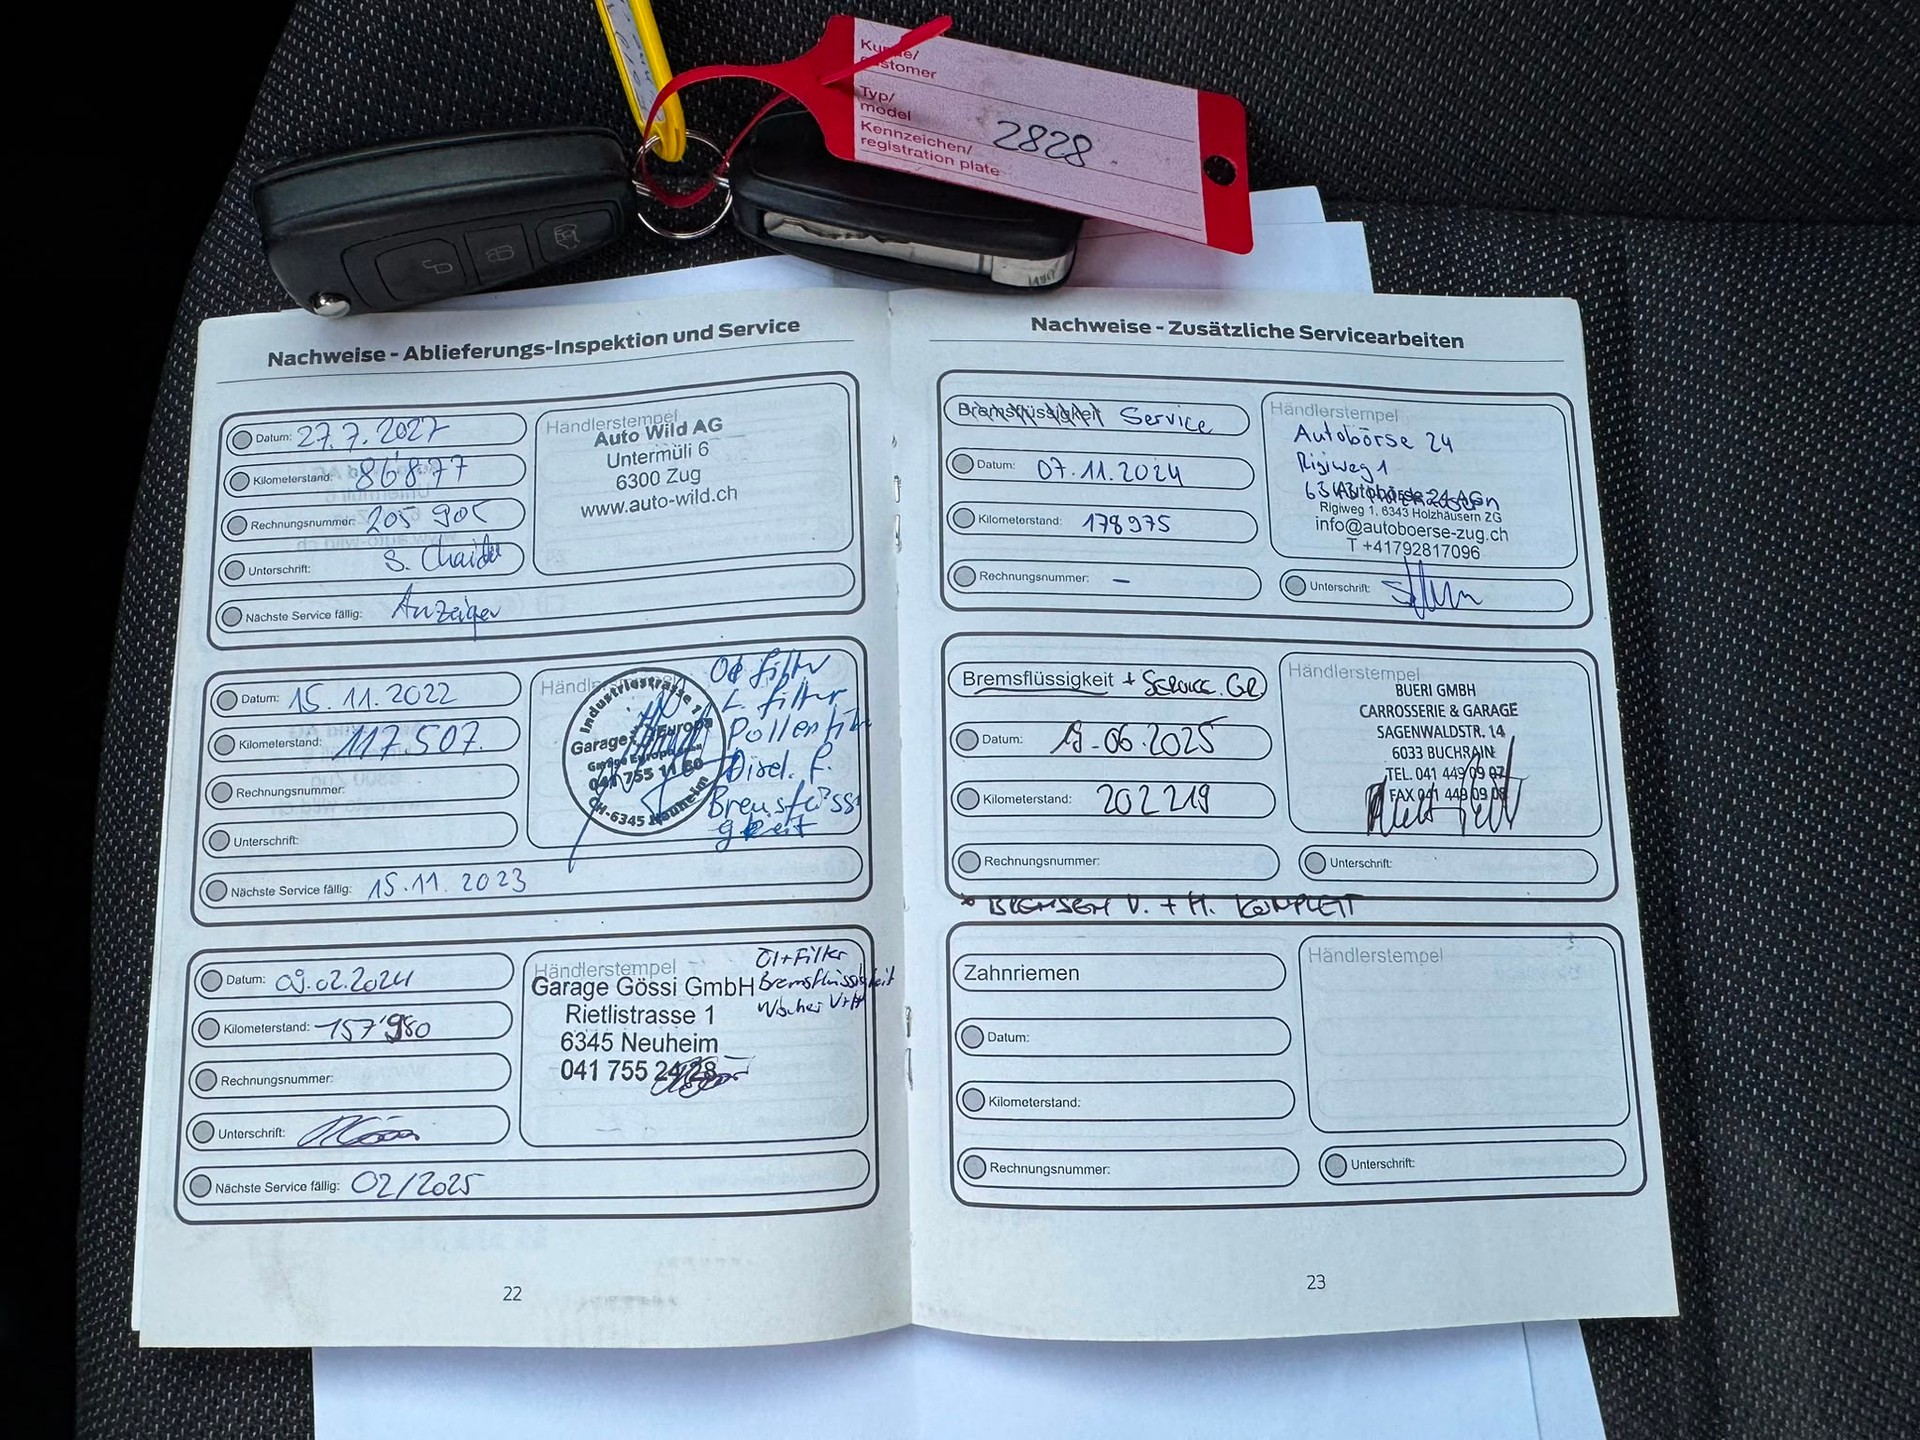 Kunde/
customer
Typ/
model
Kennzeichen/
registration plate
2828
Nachweise - Ablieferungs-Inspektion und Service
Datum: 27.7.2021
Kilometerstand: 86'877
Rechnungsnummer: 205 905
Unterschrift:
Nächste Service fällig: Anzeiger
Händlerstempel
Auto Wild AG
Untermüli 6
6300 Zug
www.auto-wild.ch
Datum: 15.11.2022
Kilometerstand: 117'507.
Rechnungsnummer:
Unterschrift:
Nächste Service fällig: 15.11.2023
Industriestrasse 1
Garage Europa
041 755 11 60
CH-6345 Neuheim
Öl filter
L. filter
Pollenfilt
Disel. F.
Bremsflüss
gkeit
Datum: 09.02.2024
Kilometerstand: 157'980
Rechnungsnummer:
Unterschrift:
Nächste Service fällig: 02/2025
Händlerstempel
Garage Gössi GmbH
Rietlistrasse 1
6345 Neuheim
041 755 24 28
Öl+Filter
Bremsflüssigkeit
Wischer V+H
22
Nachweise - Zusätzliche Servicearbeiten
Bremsflüssigkeit Service
Datum: 07.11.2024
Kilometerstand: 178975
Rechnungsnummer: –
Händlerstempel
Autobörse 24
Rigiweg 1
Autobörse 24 AG
Rigiweg 1, 6343 Holzhäusern ZG
info@autoboerse-zug.ch
T +41792817096
Unterschrift:
Bremsflüssigkeit + SERVICE. GR.
Datum: 19.06.2025
Kilometerstand: 202219
Rechnungsnummer:
Händlerstempel
BUERI GMBH
CARROSSERIE & GARAGE
SAGENWALDSTR. 14
6033 BUCHRAIN
TEL. 041 449 09 07
FAX 041 449 09 08
Unterschrift:
* BREMSEN V. + H. KOMPLETT
Zahnriemen
Datum:
Kilometerstand:
Rechnungsnummer:
Händlerstempel
Unterschrift:
23